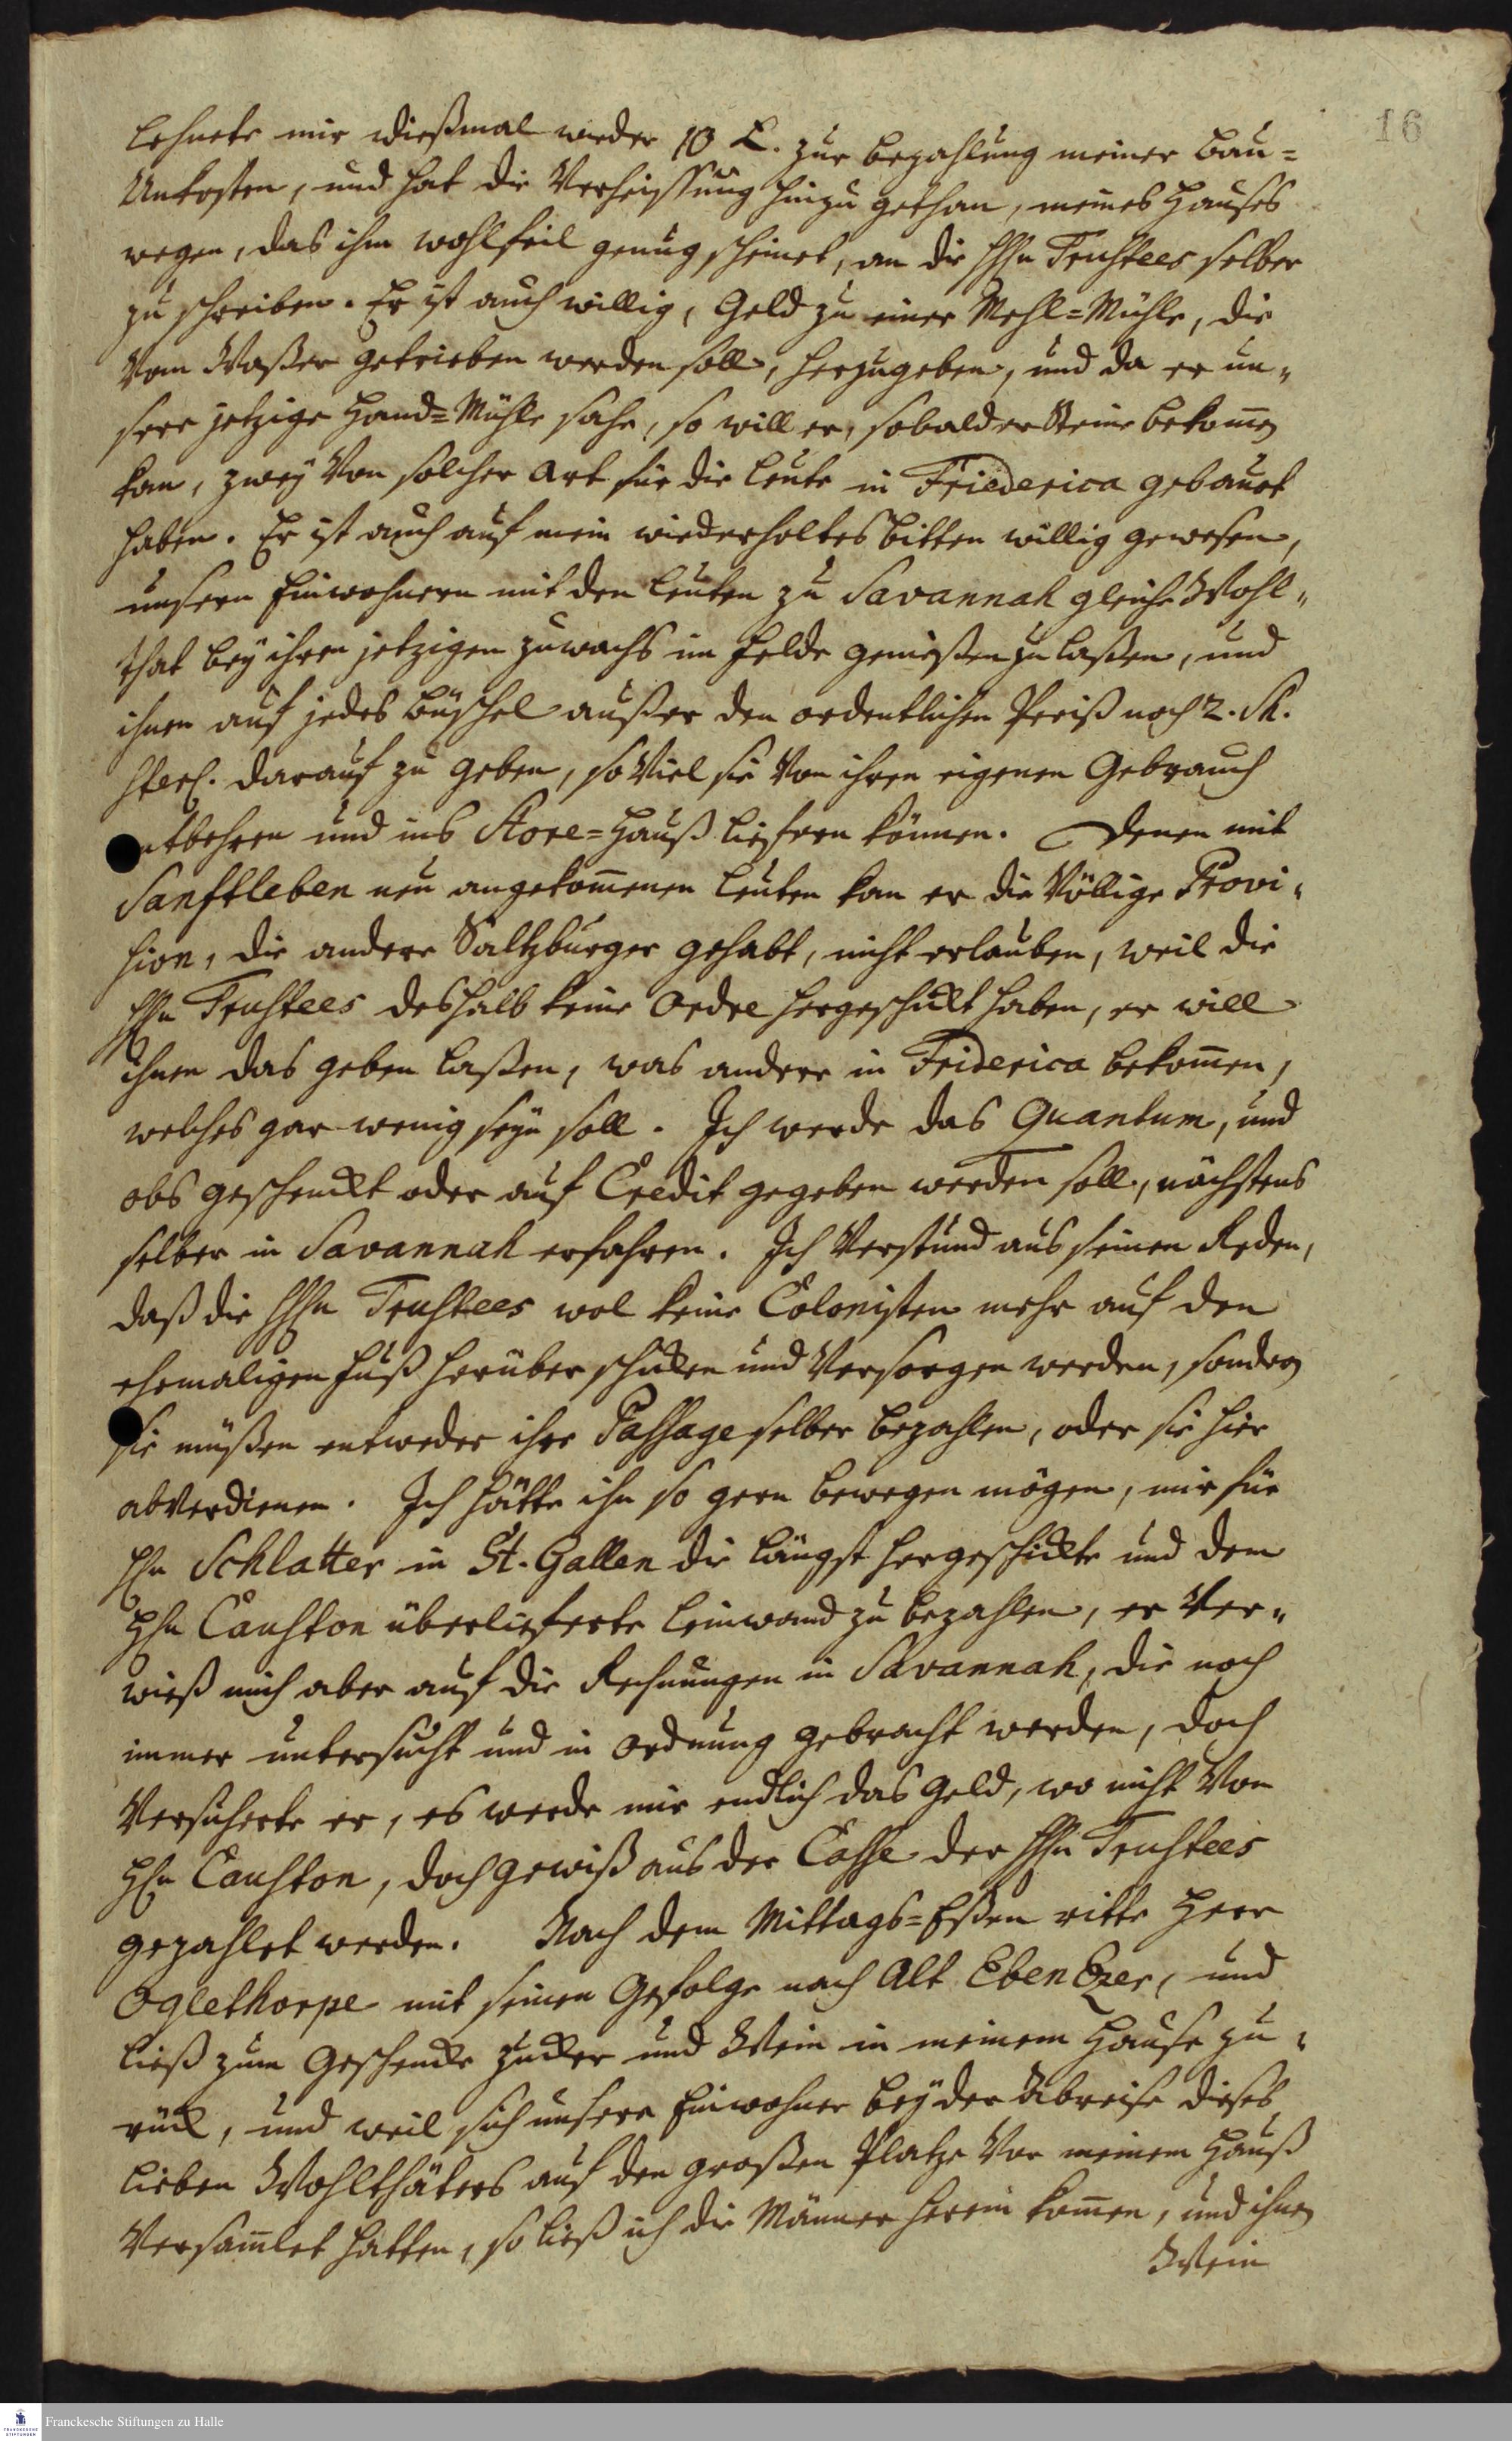 16
lehnete mir dießmal wieder 10 £. zur bezahlung meiner Bau=
Unkosten, und hat die Verheissung hinzu gethan, meines Hauses
wegen, das ihm wohlfeil genug scheinet, an die HHn Trustees selber
zu schreiben. Er ist auch willig, Geld zu einer Mehl=Mühle, die
vom Waßer getrieben werden soll, herzugeben, und da er un„
sere jetzige Hand=Mühle sahe, so will er, sobald er Steine bekom̄en
kan, zwey von solcher Art für die Leute in Friederica gebauet
haben. Er ist auch auf mein wiederholtes bitten willig gewesen,
unsern Einwohnern mit den Leuten zu Savannah gleiche Wohl„
that bey ihren jetzigen zuwachs im Felde genießen zu laßen, und
ihnen auf jedes Büschel außer den ordentlichen Preiß noch 2. Sh.
sterl. darauf zu geben, so viel sie von ihren eigenen Gebrauch
entbehren und ins Store=Hauß liefern können. Denen mit
Sanftleben neu angekom̄enen Leuten kan er die völlige Provi„
sion, die andere Saltzburger gehabt, nicht erlauben, weil die
HHn Trustees deshalb keine Ordre hergeschickt haben, er will
ihnen das geben laßen, was andere in Friderica bekom̄en,
welches gar wenig seyn soll. Ich werde das Quantum, und
obs geschenckt oder auf Credit gegeben werden soll, nächstens
selber in Savannah erfahren. Ich verstund aus seinen Reden,
daß die HHn Trustees wol keine Colonisten mehr auf den
ehemaligen Fuß herüber schicken und versorgen werden, sondern
sie müßen entweder ihre Passage selber bezahlen, oder sie hier
abverdienen. Ich hätte ihn so gern bewegen mögen, mir für
Hn Schlatter in St. Gallen die längst hergeschickte und dem
Hn Causton überlieferte Leinwand zu bezahlen, er ver„
wieß mich aber auf die Rechnungen in Savannah, die noch
immer untersucht und in Ordnung gebracht werden, doch
versicherte er, es werde mir endlich das Geld, wo nicht von
Hn Causton, doch gewiß aus der Casse der HHn Trustees
gezahlet werden. Nach dem Mittags=Eßen ritte Herr
Oglethorpe mit seinen Gefolge nach Alt EbenEzer, und
ließ zum Geschencke Zucker und Wein in meinem Hause zu„
rück, und weil sich unsere Einwohner bey der Abreise dieses
lieben Wohlthäters auf den großen Platze vor meinem Hauß
versam̄let hatten, so ließ ich die Männer herein kom̄en, und ihnen
Wein
Franckesche Stiftungen zu Halle